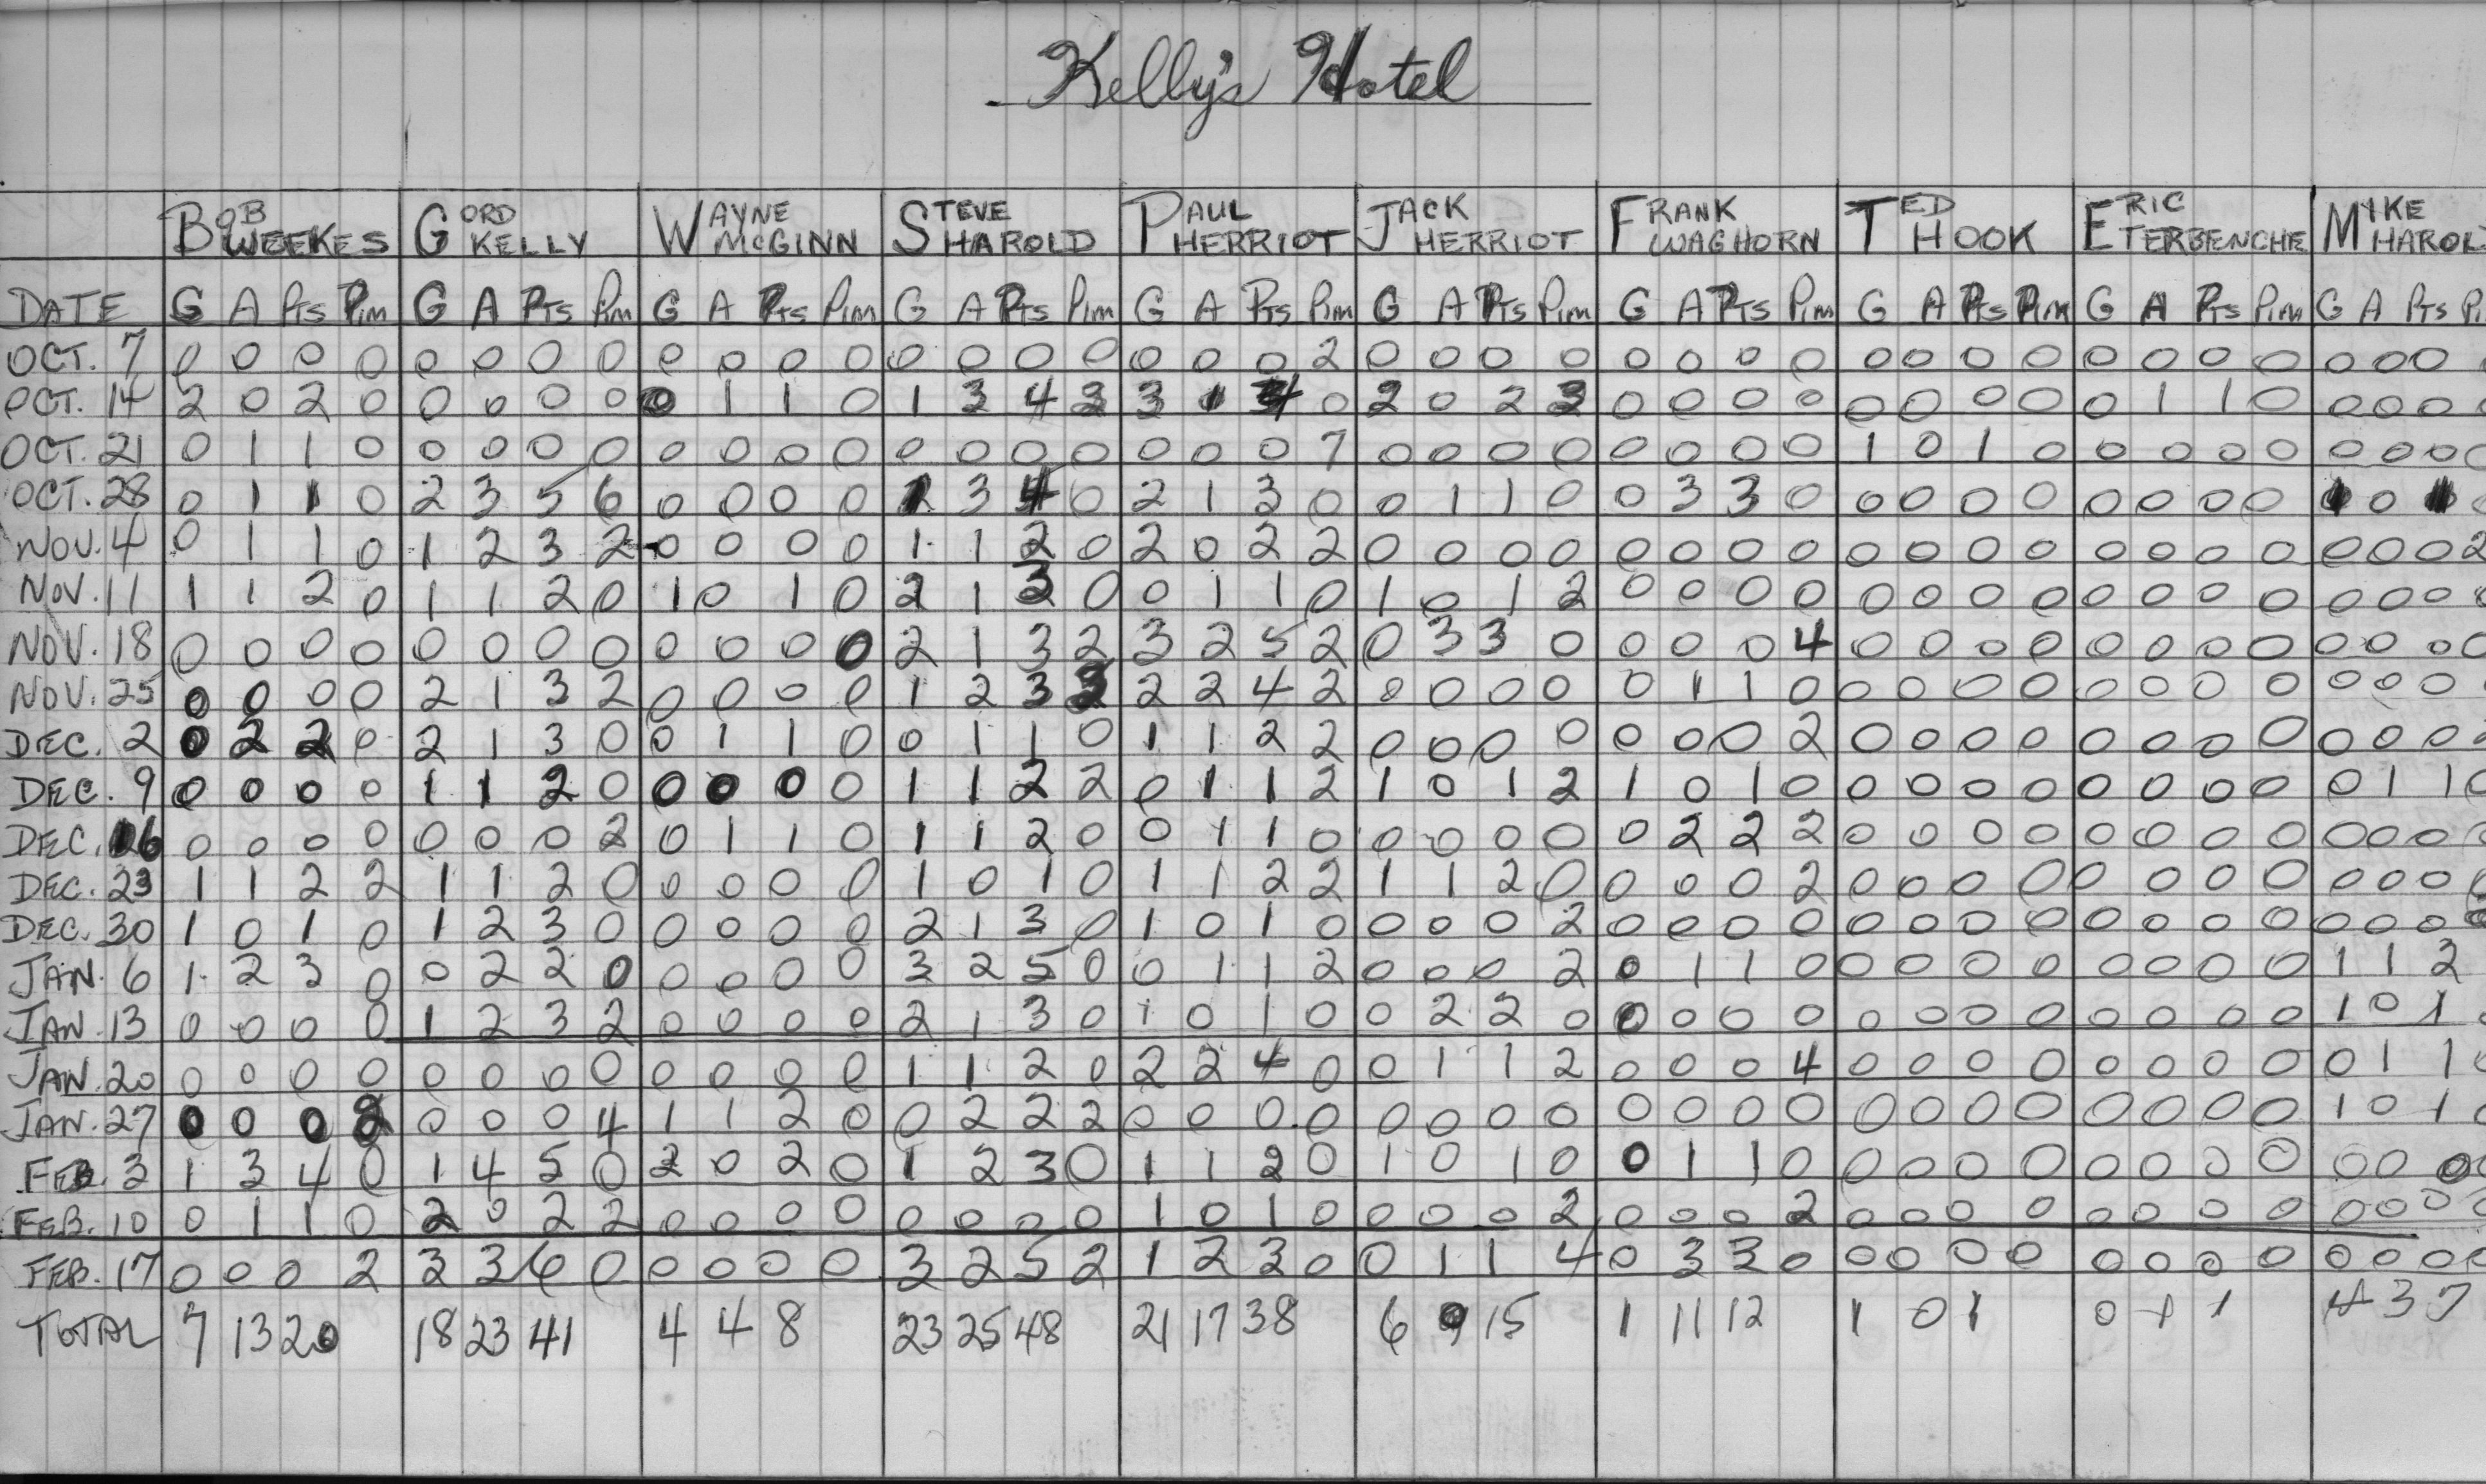 Kelly's Hotel
BOB WEEKES GORD KELLY WAYNE McGINN STEVE HAROLD PAUL HERRIOT JACK HERRIOT FRANK WAGHORN TED HOOK ERIC TERBENCHE MYKE HAROL
DATE G A Pts Pim G A Pts Pim G A Pts Pim G A Pts Pim G A Pts Pim G A Pts Pim G A Pts Pim G A Pts Pim G A Pts Pim G A Pts
OCT. 7 0 0 0 0 0 0 0 0 0 0 0 0 0 0 0 0 0 0 0 2 0 0 0 0 0 0 0 0 0 0 0 0 0 0 0 0 0 0 0
OCT. 14 2 0 2 0 0 0 0 0 0 1 1 0 1 3 4 3 1 4 0 2 0 2 0 0 0 0 0 0 0 0 0 1 1 0 0 0 0 0
OCT. 21 0 1 1 0 0 0 0 0 0 0 0 0 0 0 0 0 0 0 0 7 0 0 0 0 0 0 0 0 1 0 1 0 0 0 0 0 0 0 0 0
OCT. 28 0 1 1 0 2 3 5 6 0 0 0 0 1 3 4 0 2 1 3 0 0 1 1 0 0 3 3 0 0 0 0 0 0 0 0 0 0
NOV. 4 0 1 1 0 1 2 3 2 0 0 0 0 1 1 2 0 2 0 2 2 0 0 0 0 0 0 0 0 0 0 0 0 0 0 0 0 0 0 0 2
NOV. 11 1 1 2 0 1 1 2 0 1 0 1 0 2 1 3 0 0 1 1 0 1 0 1 2 0 0 0 0 0 0 0 0 0 0 0 0 0 0 0
NOV. 18 0 0 0 0 0 0 0 0 0 0 0 0 2 1 3 2 3 2 5 2 0 3 3 0 0 0 0 4 0 0 0 0 0 0 0 0 0 0 0 0
NOV. 25 0 0 0 0 2 1 3 2 0 0 0 0 1 2 3 2 2 4 2 0 0 0 0 0 1 1 0 0 0 0 0 0 0 0 0 0 0 0
DEC. 2 0 2 2 0 2 1 3 0 0 1 1 0 0 1 1 0 1 1 2 2 0 0 0 0 0 0 0 2 0 0 0 0 0 0 0 0 0 0 0
DEC. 9 0 0 0 0 1 1 2 0 0 0 0 0 1 1 2 2 0 1 1 2 1 0 1 2 1 0 1 0 0 0 0 0 0 0 0 0 0 1 1 0
DEC. 16 0 0 0 0 0 0 0 2 0 1 1 0 1 1 2 0 0 1 1 0 0 0 0 0 0 2 2 2 0 0 0 0 0 0 0 0 0 0 0
DEC. 23 1 1 2 2 1 1 2 0 0 0 0 0 1 0 1 0 1 1 2 2 1 1 2 0 0 0 0 2 0 0 0 0 0 0 0 0 0 0 0
DEC. 30 1 0 1 0 1 2 3 0 0 0 0 0 2 1 3 0 1 0 1 0 0 0 0 2 0 0 0 0 0 0 0 0 0 0 0 0 0 0 0
JAN. 6 1 2 3 0 0 2 2 0 0 0 0 0 3 2 5 0 0 1 1 2 0 0 0 2 0 1 1 0 0 0 0 0 0 0 0 0 1 1 2
JAN. 13 0 0 0 0 1 2 3 2 0 0 0 0 2 1 3 0 1 0 1 0 0 2 2 0 0 0 0 0 0 0 0 0 0 0 0 0 1 0 1
JAN. 20 0 0 0 0 0 0 0 0 0 0 0 0 1 1 2 0 2 2 4 0 0 1 1 2 0 0 0 4 0 0 0 0 0 0 0 0 0 1 1
JAN. 27 0 0 0 2 0 0 0 4 1 1 2 0 0 2 2 2 0 0 0 0 0 0 0 0 0 0 0 0 0 0 0 0 0 0 0 0 1 0 1
FEB. 3 1 3 4 0 1 4 5 0 2 0 2 0 1 2 3 0 1 1 2 0 1 0 1 0 0 1 1 0 0 0 0 0 0 0 0 0 0 0 0
FEB. 10 0 1 1 0 2 0 2 2 0 0 0 0 0 0 0 0 1 0 1 0 0 0 0 2 0 0 0 2 0 0 0 0 0 0 0 0 0 0 0
FEB. 17 0 0 0 2 3 3 6 0 0 0 0 0 3 2 5 2 1 2 3 0 0 1 1 4 0 3 3 0 0 0 0 0 0 0 0 0 0 0 0 0
TOTAL 7 13 20 18 23 41 4 4 8 23 25 48 21 17 38 6 9 15 1 11 12 1 0 1 0 1 1 4 3 7